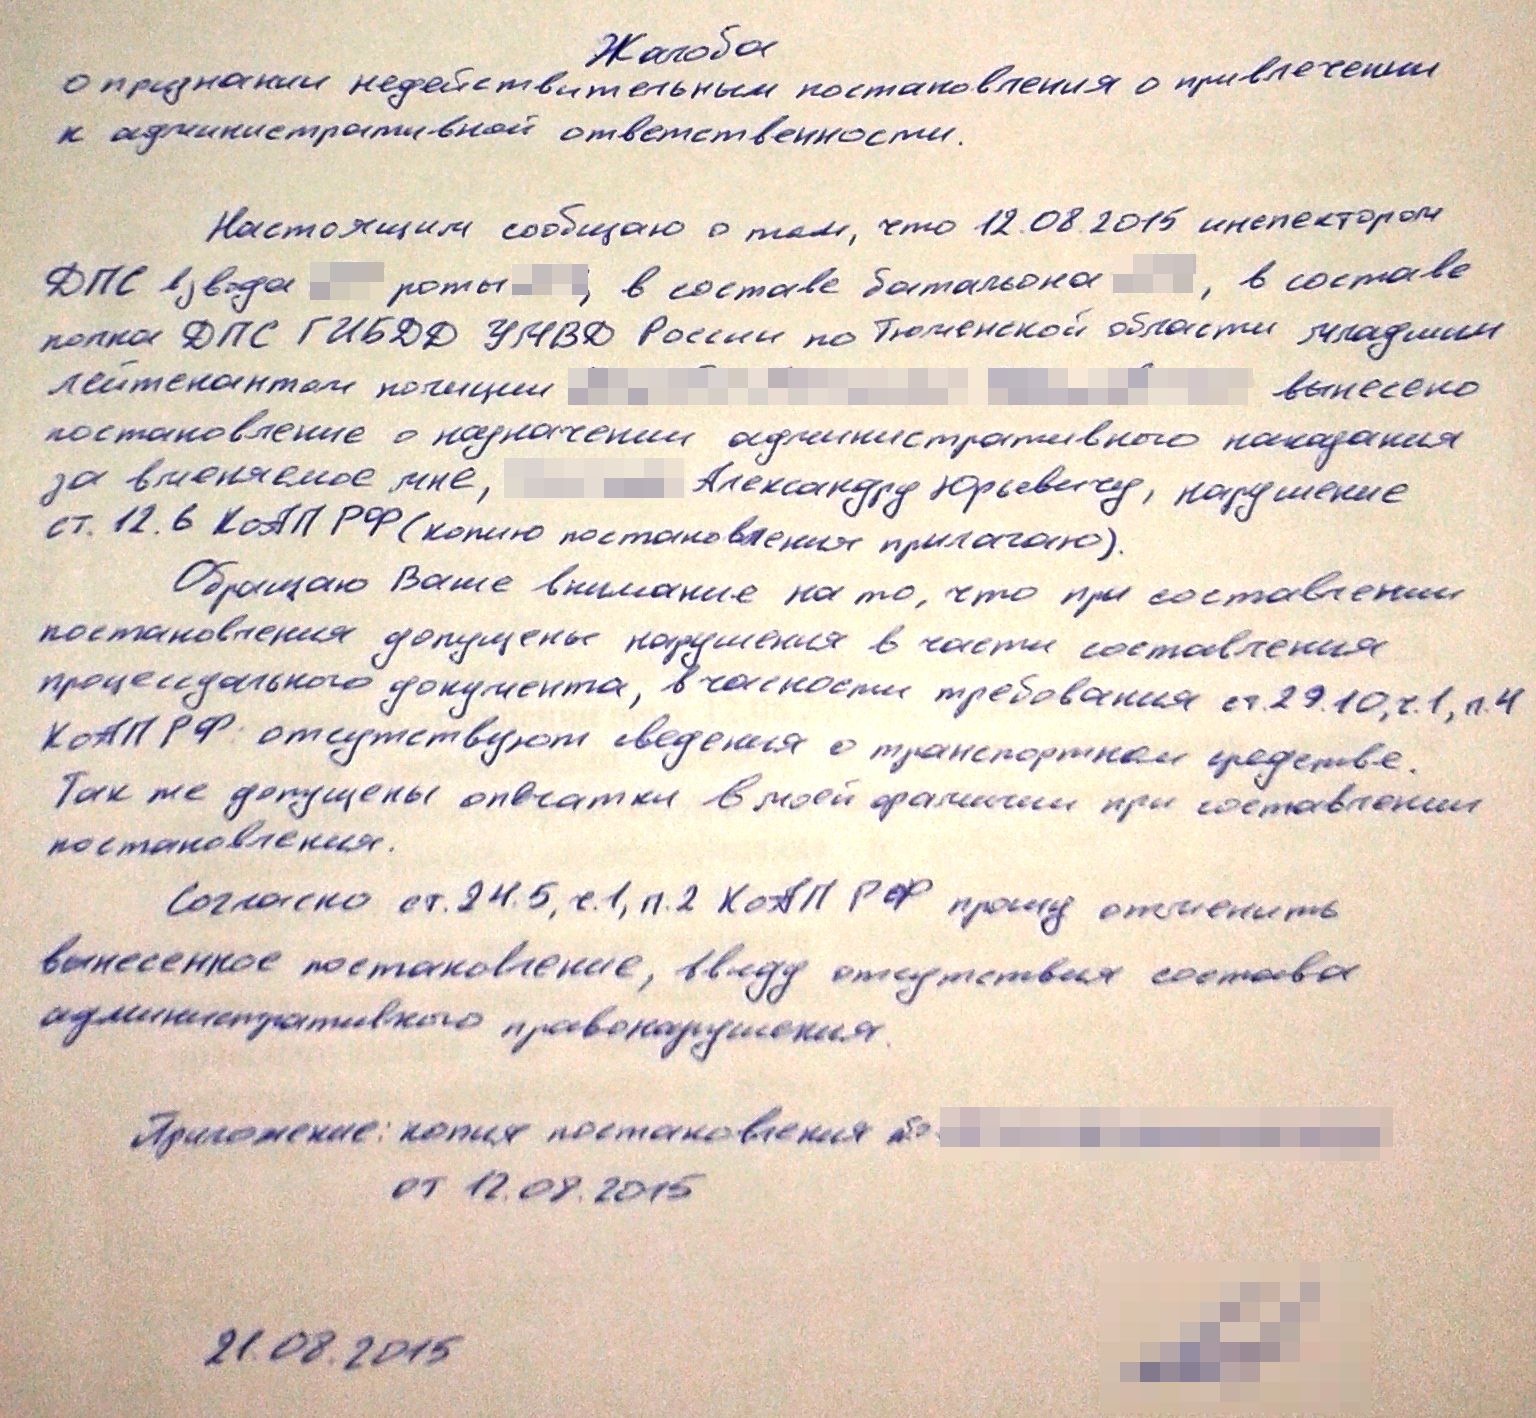 Жалоба
о признании недействительным постановления о привлечении
к административной ответственности.
Настоящим сообщаю о том, что 12.08.2015 инспектором
ДПС взвода роты , в составе батальона , в составе
полка ДПС ГИБДД УМВД России по Тюменской области младшим
лейтенантом полиции вынесено
постановление о назначении административного наказания
за вменяемое мне, Александру Юрьевичу, нарушение
ст. 12.6 КоАП РФ (копию постановления прилагаю).
Обращаю Ваше внимание на то, что при составлении
постановления допущены нарушения в части составления
процессуального документа, в часности требования ст.29.10, ч.1, п.4
КоАП РФ: отсутствуют сведения о транспортном средстве.
Так же допущены опечатки в моей фамилии при составлении
постановления.
Согласно ст.24.5, ч.1, п.2 КоАП РФ прошу отменить
вынесенное постановление, ввиду отсутствия состава
административного правонарушения.
Приложение: копия постановления
от 12.08.2015
21.08.2015